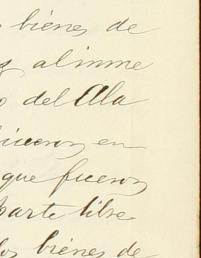 bienes de
al inme
del Ala
hicieron en
que fueron
parte libre
los bienes de